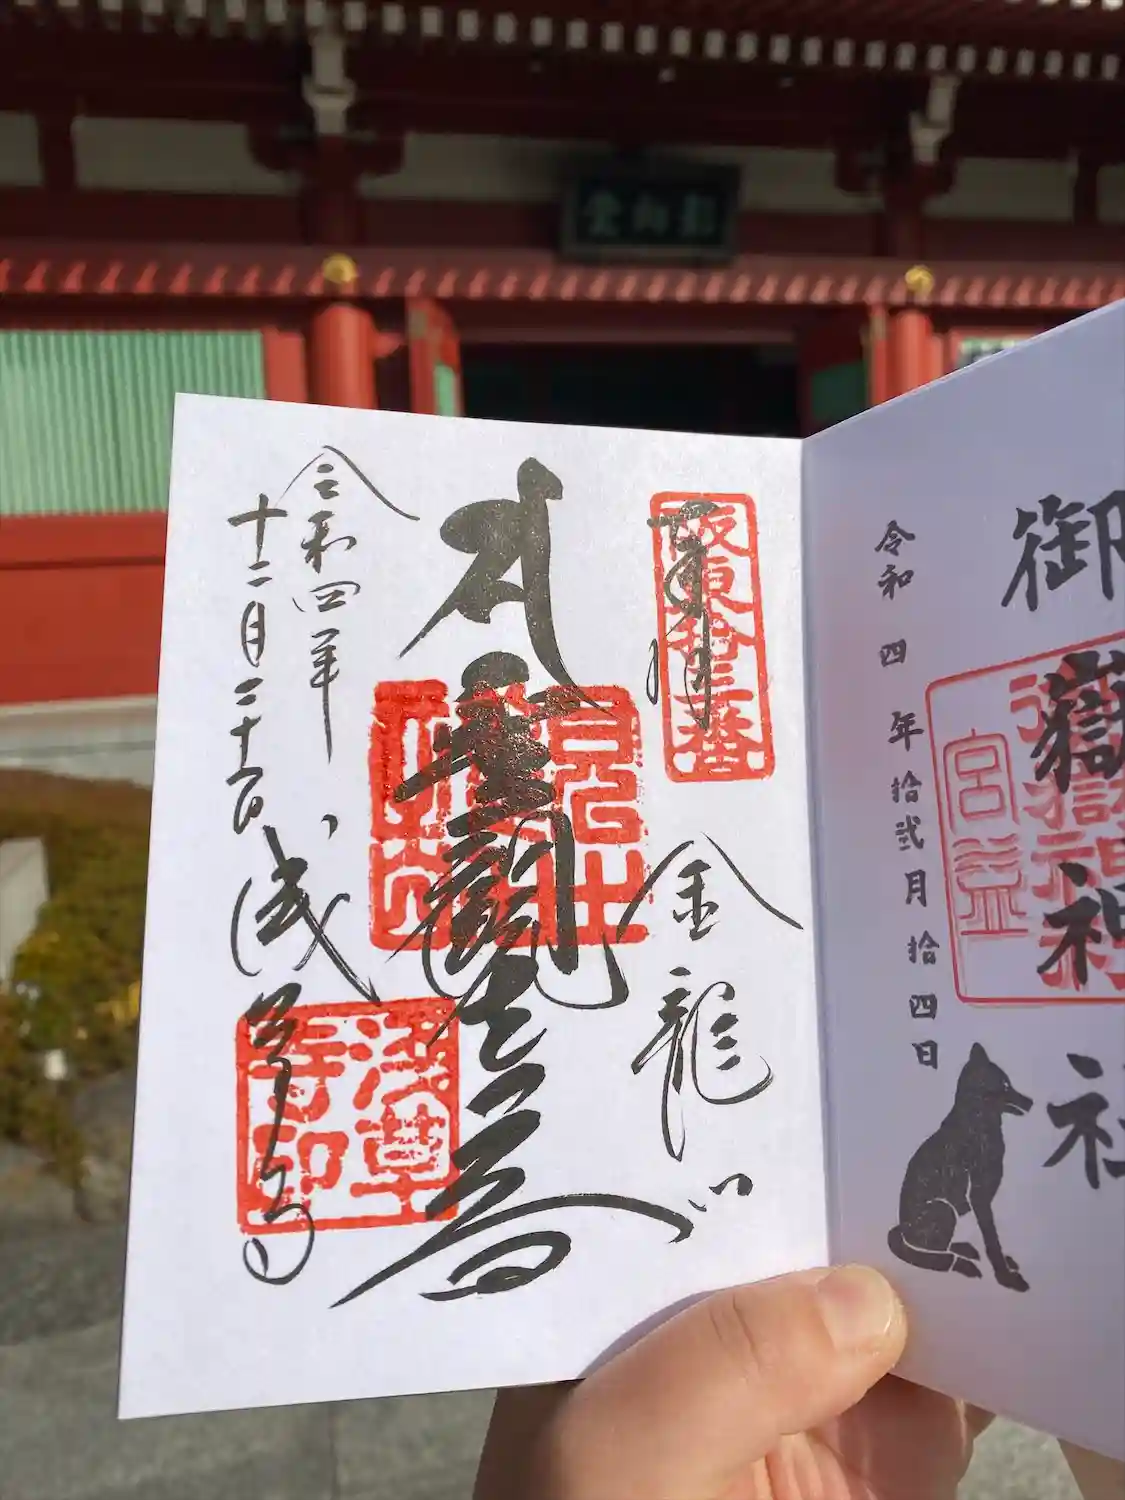 影向堂
御
嶽
神
社
宮益
令和四年拾弐月拾四日
奉拝
坂東拾三番
金龍山
聖観世音
令和四年
十二月二十日
浅草寺
浅草寺印